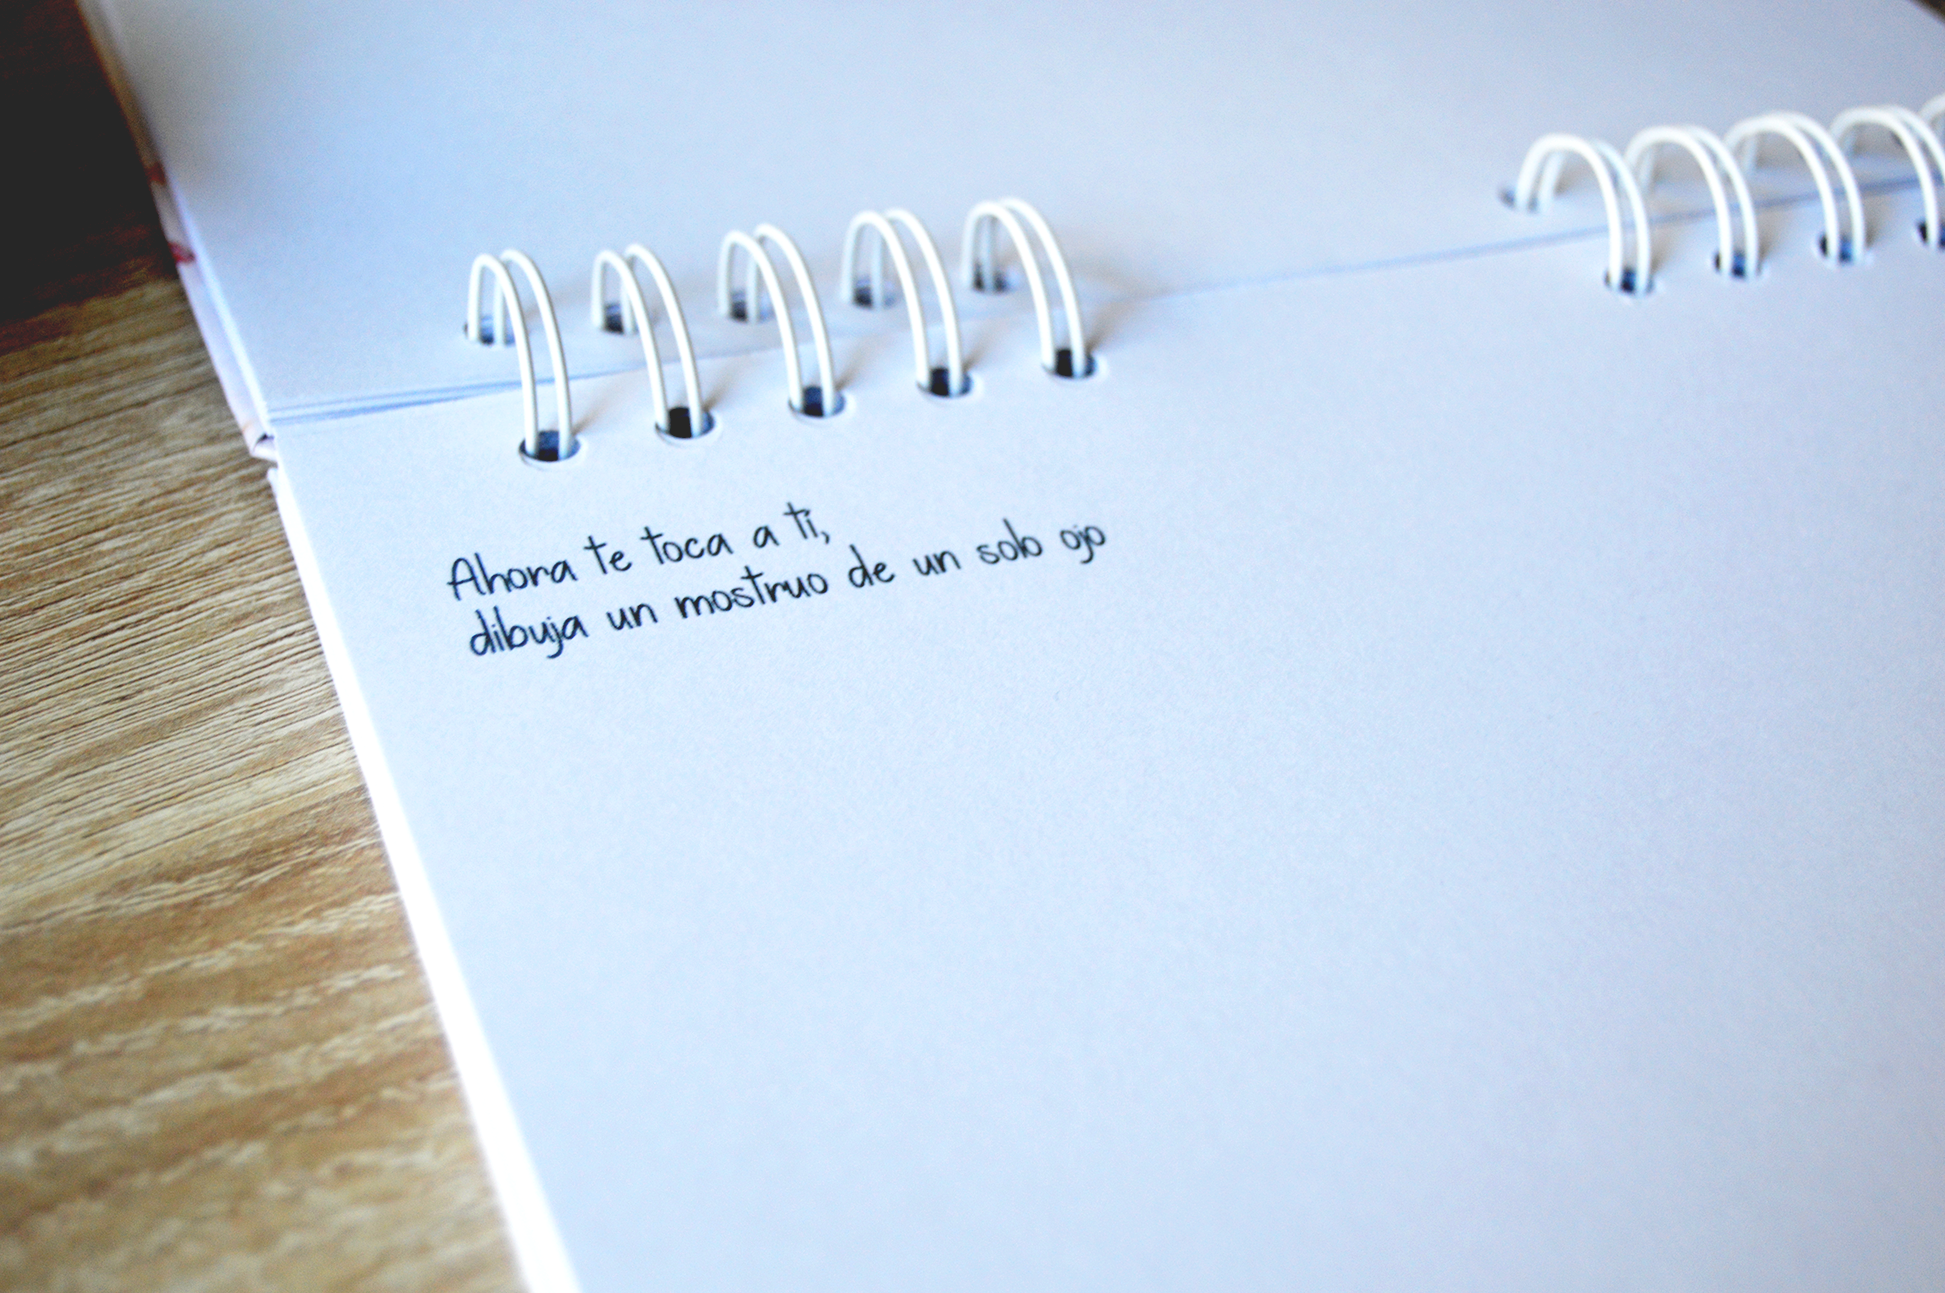 Ahora te toca a ti,
dibuja un mostruo de un solo ojo